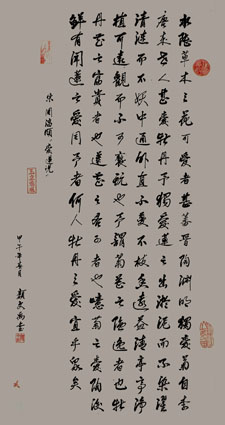 水陸草木之花可愛者甚蕃晉陶淵明獨愛菊自李
唐來世人甚愛牡丹予獨愛蓮之出淤泥而不染濯
清漣而不妖中通外直不蔓不枝香遠益清亭亭淨
植可遠觀而不可褻玩也予謂菊花之隱逸者也牡
丹花之富貴者也蓮花之君子者也噫菊之愛陶後
鮮有聞蓮之愛同予者何人牡丹之愛宜乎眾矣
宋周 愛蓮說
甲午年 月 書